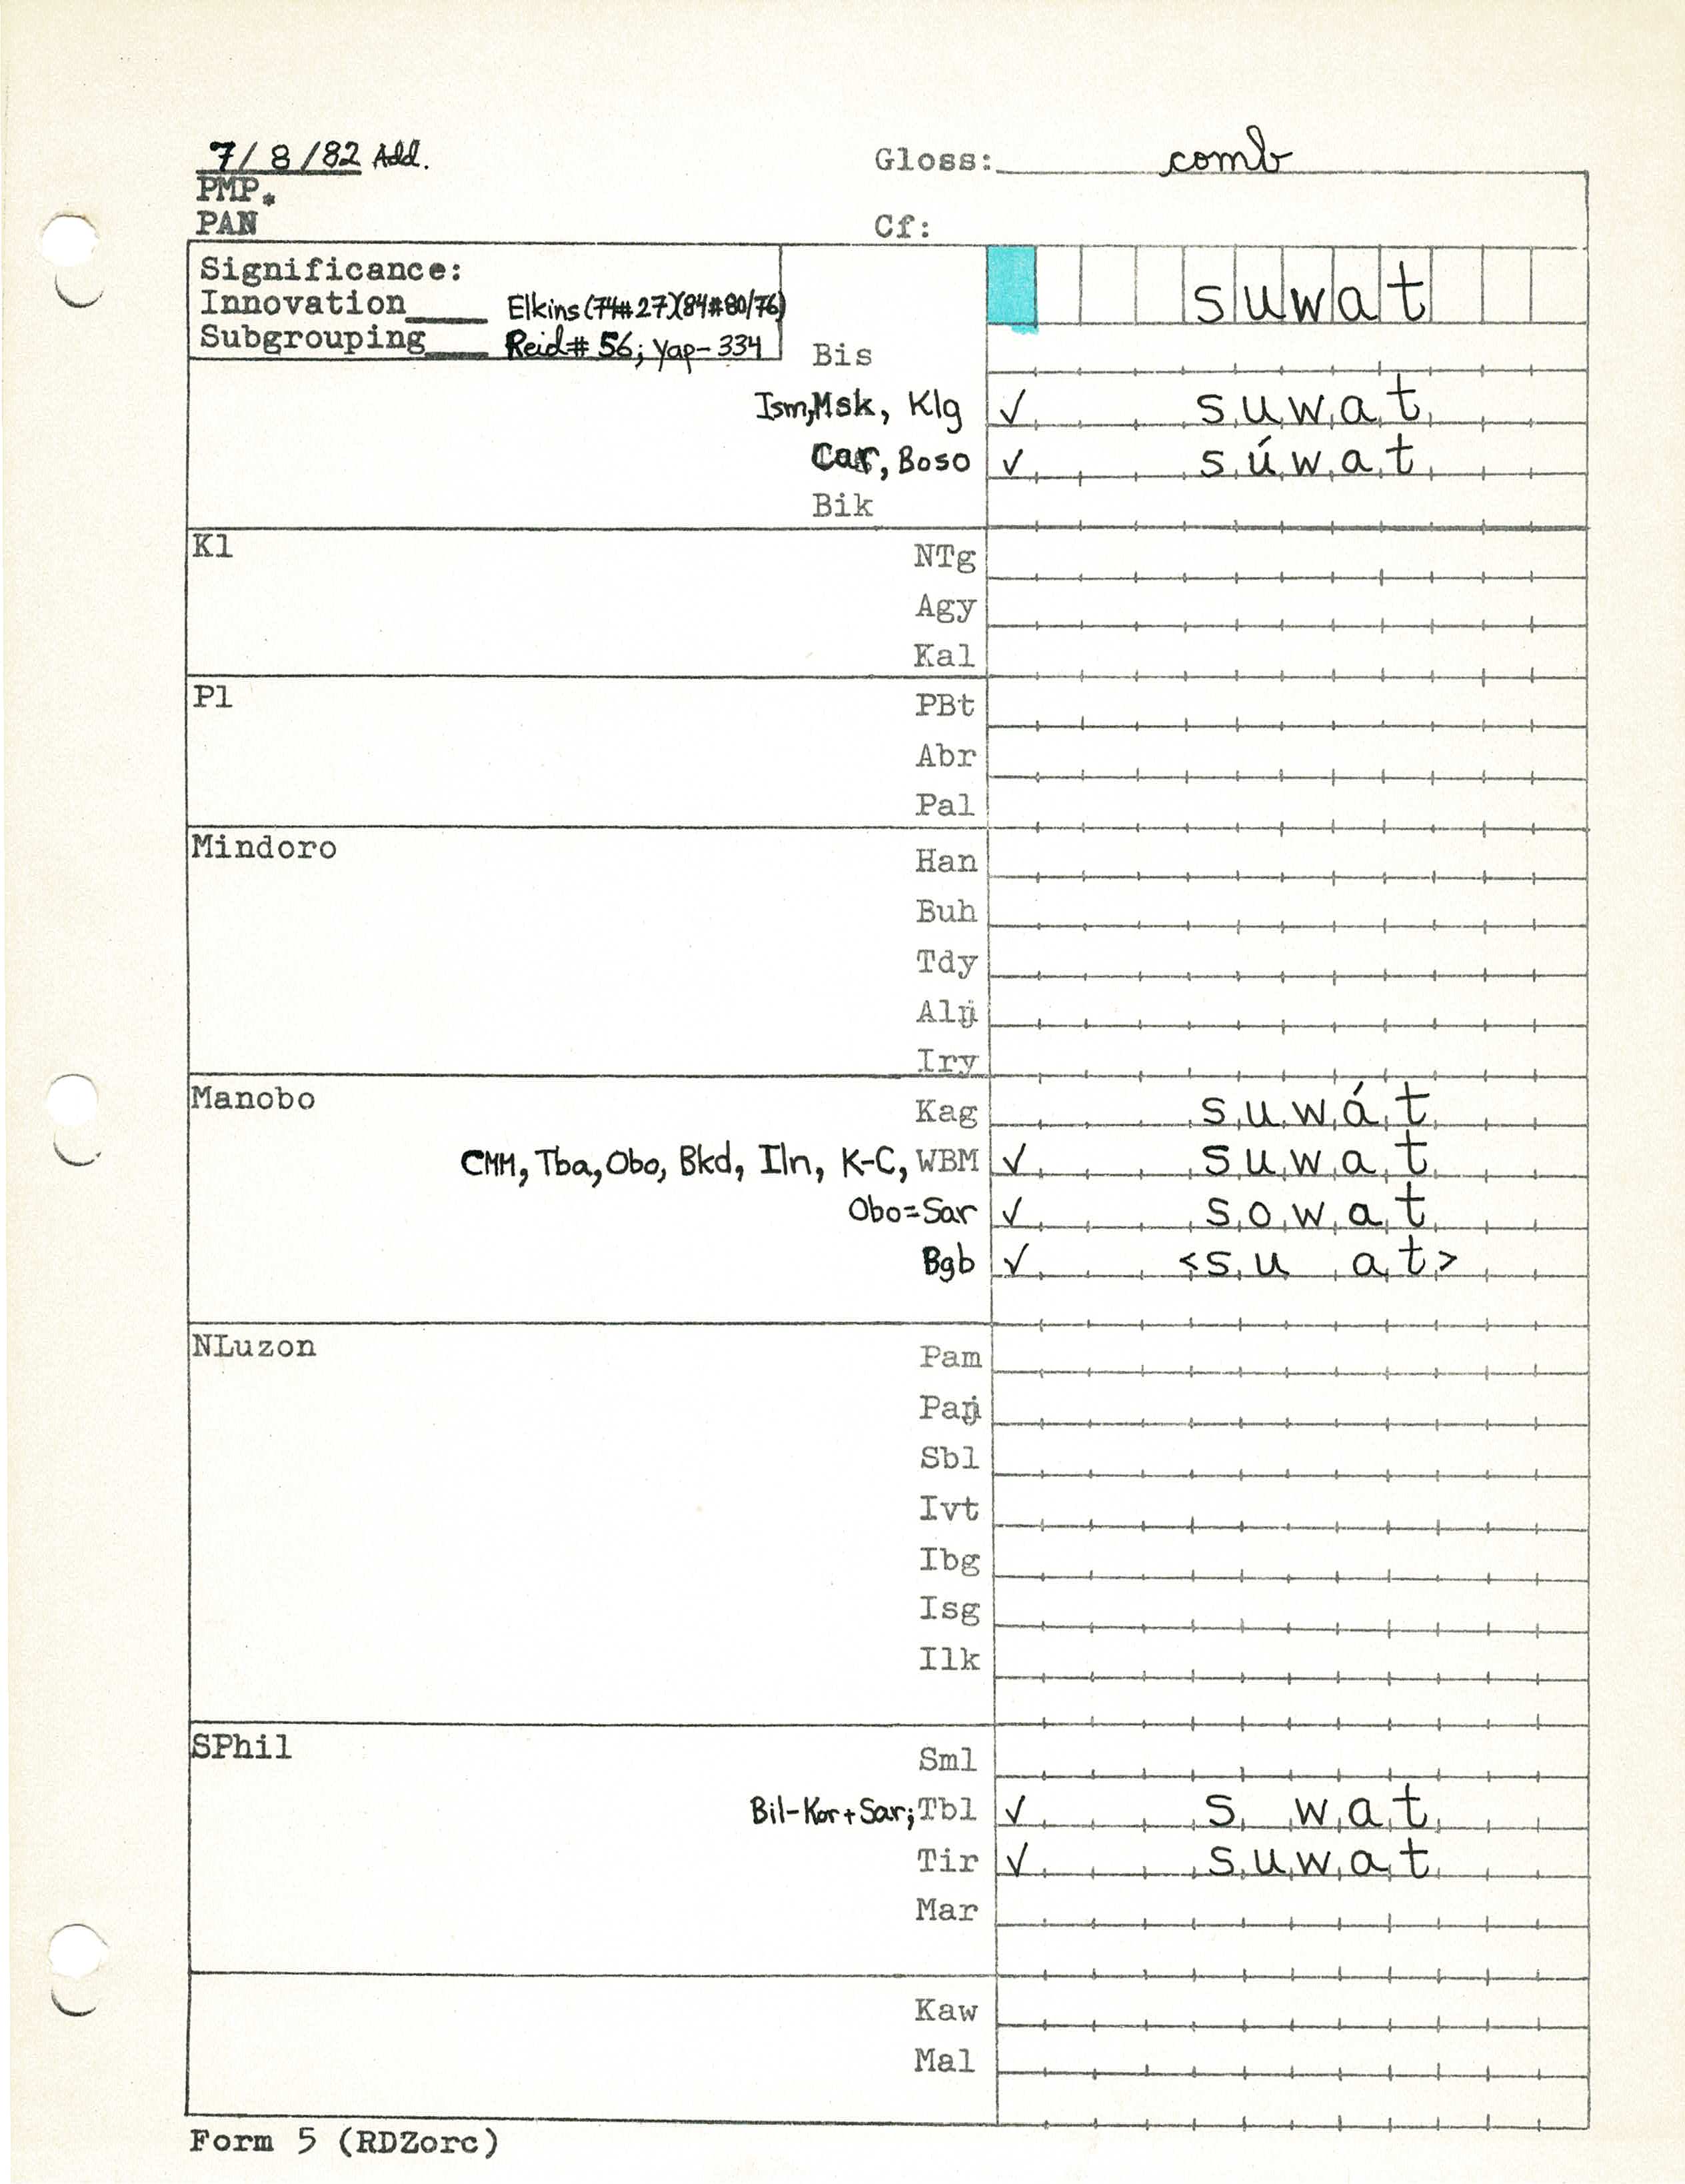 7/8/82 Add.
Gloss: comb
PMP*
PAN
Cf:
Significance:
Innovation____ Elkins (74#27)(84#80/76)
Subgrouping____ Reid# 56; Yap-334
suwat
Bis
Ism, Msk, Klg ✓ suwat
Car, Boso ✓ súwat
Bik
Kl
NTg
Agy
Kal
Pl
PBt
Abr
Pal
Mindoro
Han
Buh
Tdy
Alŋ
Iry
Manobo
Kag suwát
CMM, Tba, Obo, Bkd, Iln, K-C, WBM ✓ suwat
Obo=Sar ✓ sowat
Bgb ✓ <su at>
NLuzon
Pam
Paŋ
Sbl
Ivt
Ibg
Isg
Ilk
SPhil
Sml
Bil-Kor+Sar; Tbl ✓ s wat
Tir ✓ suwat
Mar
Kaw
Mal
Form 5 (RDZorc)